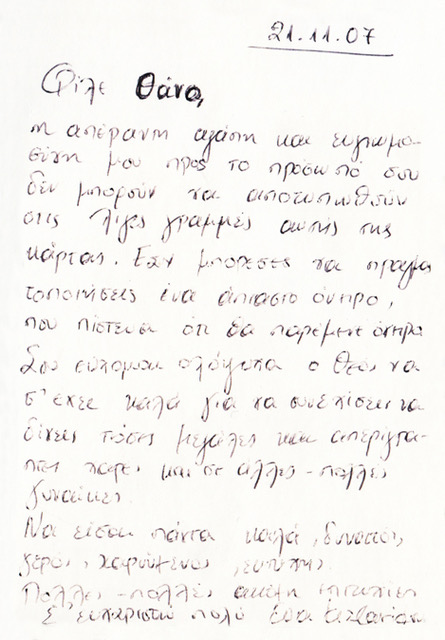 21.11.07
Φίλε Θάνο,
η απέραντη αγάπη και ευγνωμο-
σύνη μου προς το πρόσωπό σου
δεν μπορούν να αποτυπωθούν
στις λίγες γραμμές αυτής της
κάρτας. Εσύ μπόρεσες να πραγμα
τοποιήσεις ένα άπιαστο όνειρο,
που πίστευα ότι θα παρέμενε όνειρο
Σου εύχομαι ολόψυχα ο Θεός να
σ' έχει καλά για να συνεχίσεις να
δίνεις τόσες μεγάλες και απερίγρα-
πτες χαρές και σε άλλες - πολλές
γυναίκες.
Να είσαι πάντα καλά, δυνατός,
γερός, χαρούμενος, ευτυχής
Πολλές - πολλές ακόμη επιτυχίες
Σ' ευχαριστώ πολύ